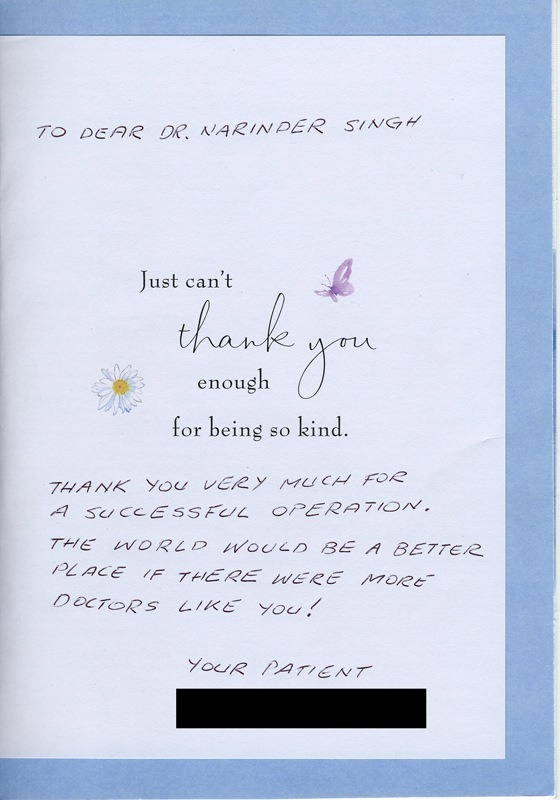 TO DEAR DR. NARINDER SINGH
Just can't
thank you
enough
for being so kind.
THANK YOU VERY MUCH FOR
A SUCCESSFUL OPERATION.
THE WORLD WOULD BE A BETTER
PLACE IF THERE WERE MORE
DOCTORS LIKE YOU!
YOUR PATIENT